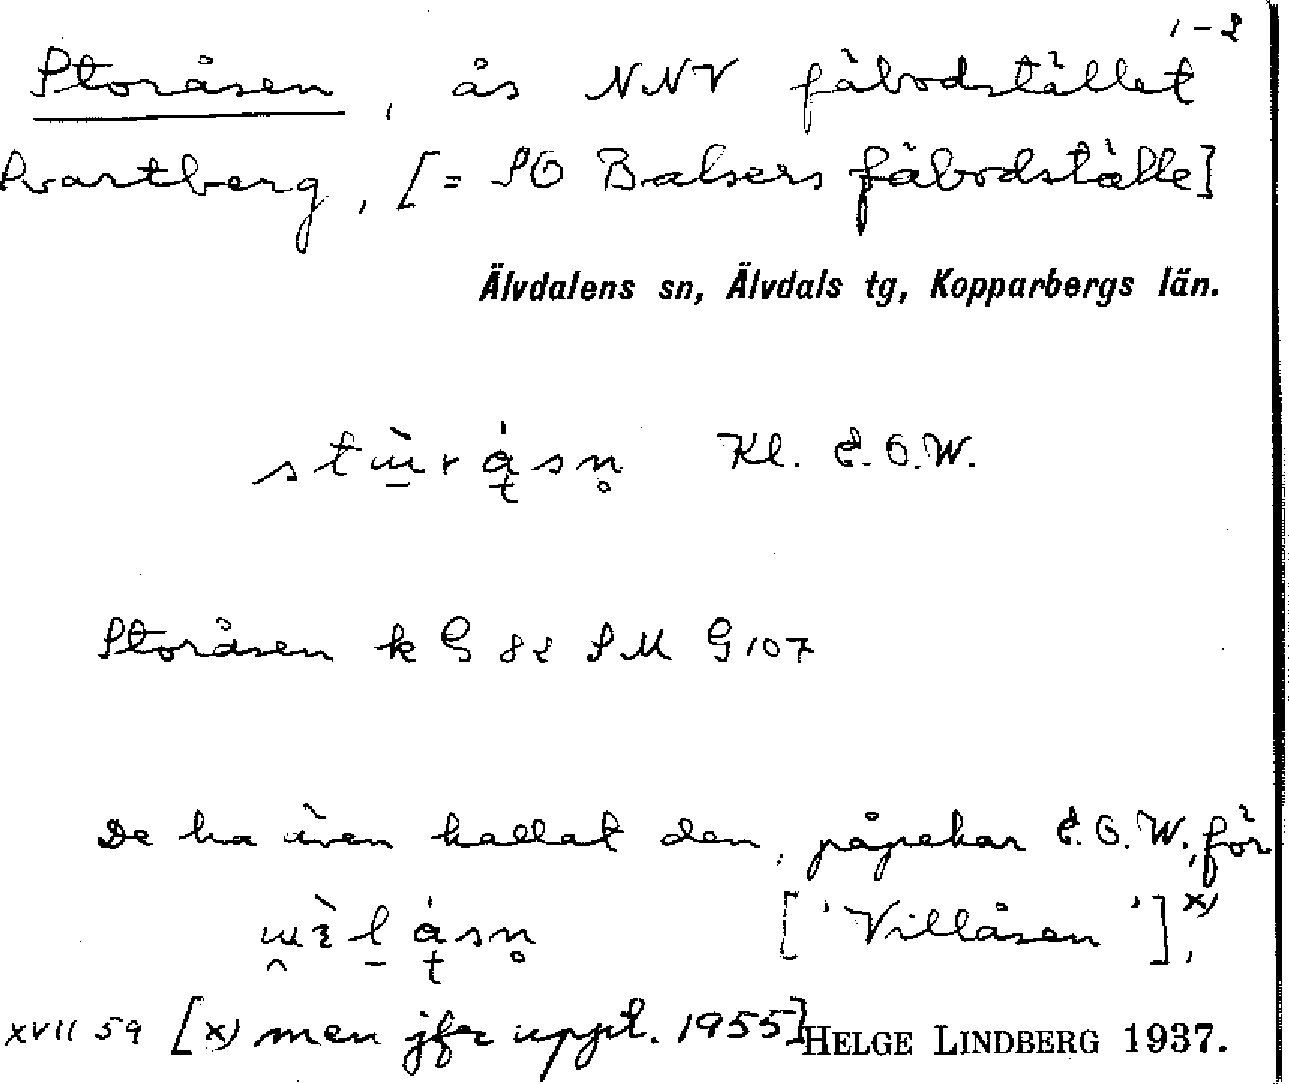 1-2
Storåsen, ås NNV fäbodstället
Svartberg, [= SO Balsers fäbodställe]
Älvdalens sn, Älvdals tg, Kopparbergs län.
Kl. E.O.W.
Storåsen k G 82 SM G 107
De ha även kallat den, påpekar E.O.W., för
['Villåsen'],x)
XVII 59 [x) men jfr uppt. 1955]
HELGE LINDBERG 1937.